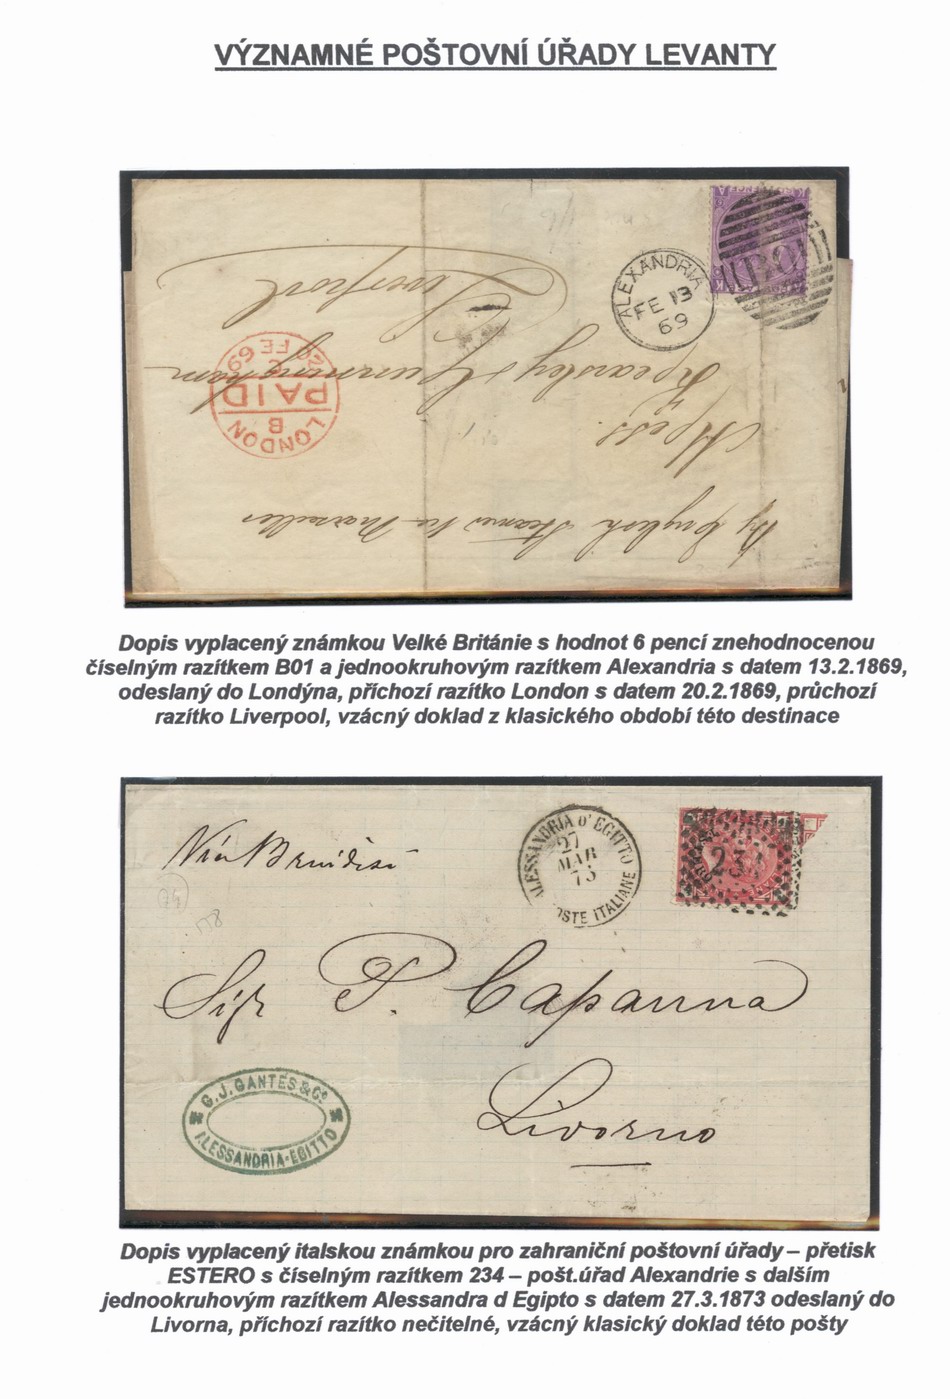 VÝZNAMNÉ POŠTOVNÍ ÚŘADY LEVANTY
ALEXANDRIA
FE 13
69
B01
LONDON
B
PAID
FE 69
By English Steamer via Marseilles
Messrs
Liverpool
Dopis vyplacený známkou Velké Británie s hodnot 6 pencí znehodnocenou
číselným razítkem B01 a jednookruhovým razítkem Alexandria s datem 13.2.1869,
odeslaný do Londýna, příchozí razítko London s datem 20.2.1869, průchozí
razítko Liverpool, vzácný doklad z klasického období této destinace
Via Brindisi
ALESSANDRIA D'EGITTO
27
MAR
73
POSTE ITALIANE
234
Sigr P. Capanna
Livorno
G. J. GANTES & Co
ALESSANDRIA-EGITTO
Dopis vyplacený italskou známkou pro zahraniční poštovní úřady – přetisk
ESTERO s číselným razítkem 234 – pošt.úřad Alexandrie s dalším
jednookruhovým razítkem Alessandra d Egipto s datem 27.3.1873 odeslaný do
Livorna, příchozí razítko nečitelné, vzácný klasický doklad této pošty